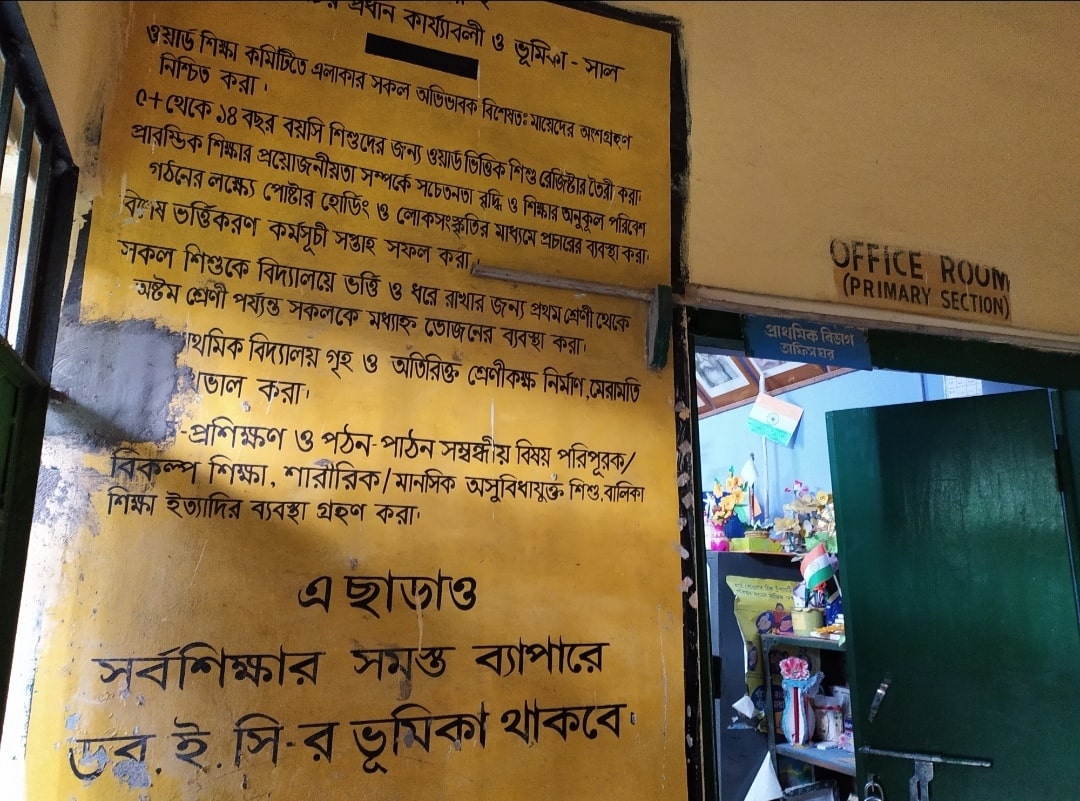 প্রধান কার্য্যাবলী ও ভূমিকা - সাল
ওয়ার্ড শিক্ষা কমিটিতে এলাকার সকল অভিভাবক বিশেষতঃ মায়েদের অংশগ্রহণ
নিশ্চিত করা।
৫+ থেকে ১৪ বছর বয়সি শিশুদের জন্য ওয়ার্ড ভিত্তিক শিশু রেজিষ্টার তৈরী করা।
প্রারম্ভিক শিক্ষার প্রয়োজনীয়তা সম্পর্কে সচেতনতা বৃদ্ধি ও শিক্ষার অনুকূল পরিবেশ
গঠনের লক্ষ্যে পোষ্টার হোর্ডিং ও লোকসংস্কৃতির মাধ্যমে প্রচারের ব্যবস্থা করা।
বিশেষ ভর্ত্তিকরণ কর্মসূচী সপ্তাহ সফল করা।
সকল শিশুকে বিদ্যালয়ে ভর্ত্তি ও ধরে রাখার জন্য প্রথম শ্রেণী থেকে
অষ্টম শ্রেণী পর্য্যন্ত সকলকে মধ্যাহ্ন ভোজনের ব্যবস্থা করা।
থমিক বিদ্যালয় গৃহ ও অতিরিক্ত শ্রেণীকক্ষ নির্মাণ,মেরামতি
ভাল করা।
-প্রশিক্ষণ ও পঠন-পাঠন সম্বন্ধীয় বিষয় পরিপূরক/
বিকল্প শিক্ষা, শারীরিক/মানসিক অসুবিধাযুক্ত শিশু,বালিকা
শিক্ষা ইত্যাদির ব্যবস্থা গ্রহণ করা।
এ ছাড়াও
সর্বশিক্ষার সমস্ত ব্যাপারে
ডব্লু.ই.সি-র ভূমিকা থাকবে।
OFFICE ROOM
(PRIMARY SECTION)
প্রাথমিক বিভাগ
অফিসঘর